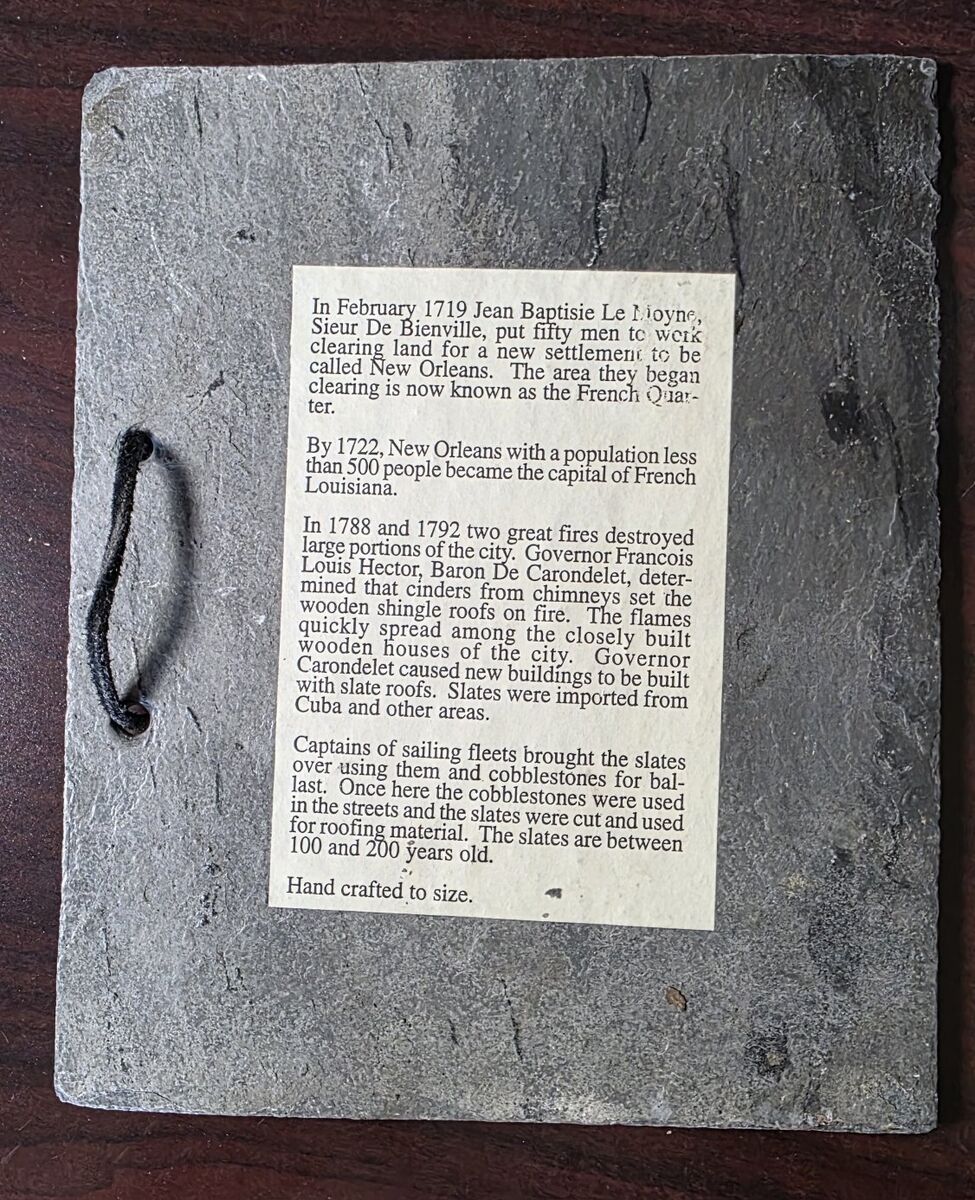 In February 1719 Jean Baptisie Le Moyne,
Sieur De Bienville, put fifty men to work
clearing land for a new settlement to be
called New Orleans. The area they began
clearing is now known as the French Quar-
ter.
By 1722, New Orleans with a population less
than 500 people became the capital of French
Louisiana.
In 1788 and 1792 two great fires destroyed
large portions of the city. Governor Francois
Louis Hector, Baron De Carondelet, deter-
mined that cinders from chimneys set the
wooden shingle roofs on fire. The flames
quickly spread among the closely built
wooden houses of the city. Governor
Carondelet caused new buildings to be built
with slate roofs. Slates were imported from
Cuba and other areas.
Captains of sailing fleets brought the slates
over using them and cobblestones for bal-
last. Once here the cobblestones were used
in the streets and the slates were cut and used
for roofing material. The slates are between
100 and 200 years old.
Hand crafted to size.